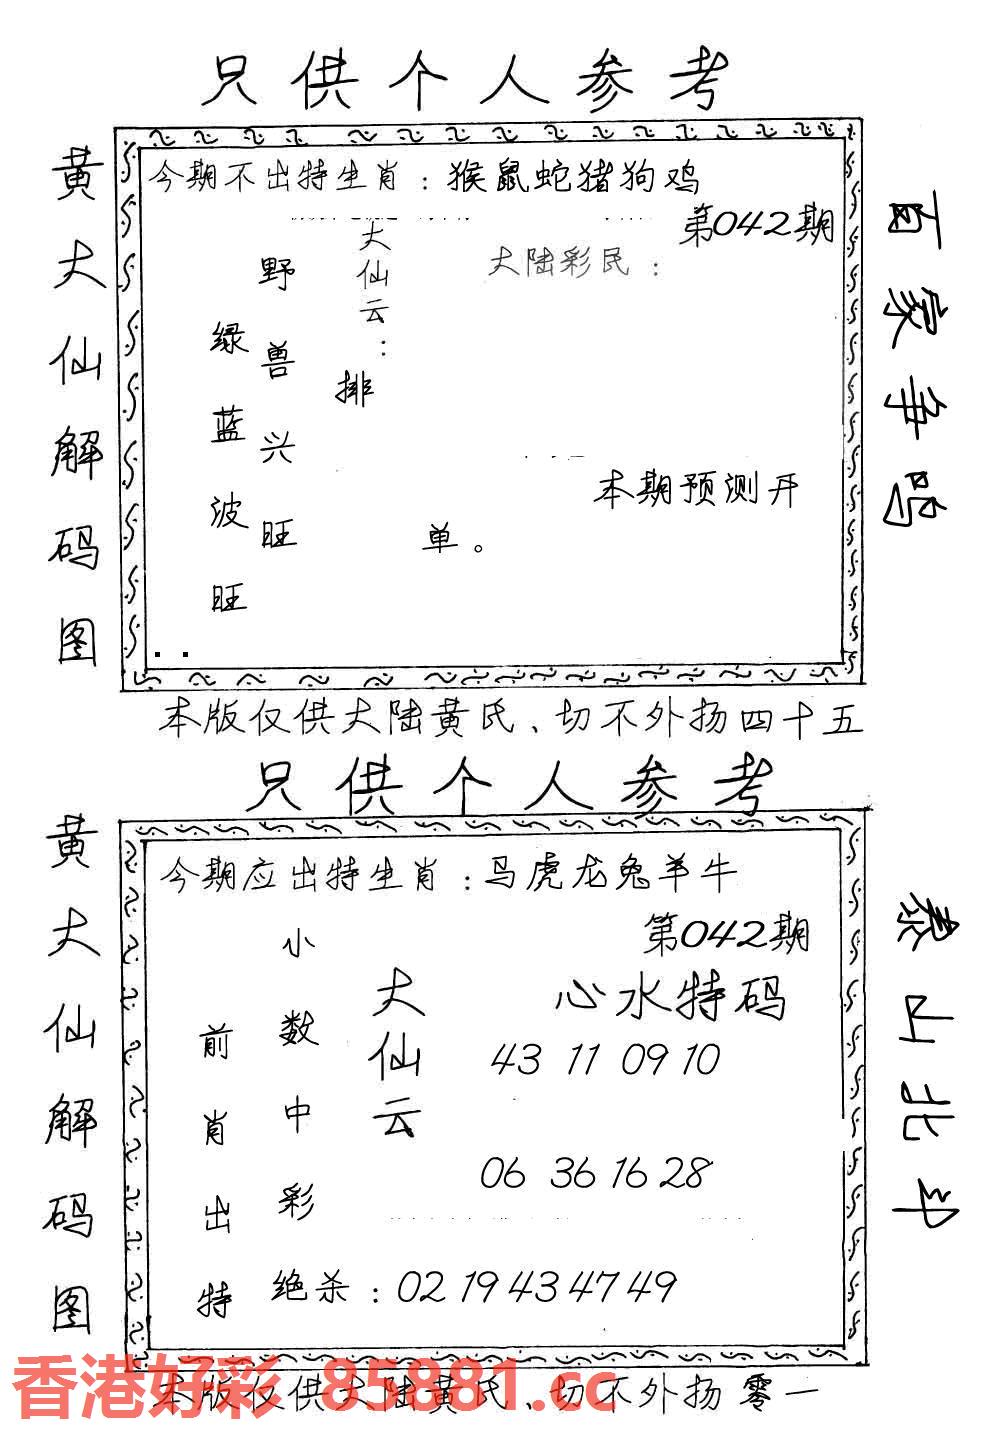 只供个人参考
黄大仙解码图
今期不出特生肖：猴鼠蛇猪狗鸡
第042期
大仙云：
大陆彩民：
野兽兴旺
绿蓝波旺
排
本期预测开
单。
百家争鸣
本版仅供大陆黄氏、切不外扬四十五
只供个人参考
黄大仙解码图
今期应出特生肖：马虎龙兔羊牛
第042期
小数中彩
大仙云
心水特码
前肖出特
43 11 09 10
06 36 16 28
绝杀：02 19 43 47 49
泰山北斗
香港好彩 85881.cc
本版仅供大陆黄氏、切不外扬零一